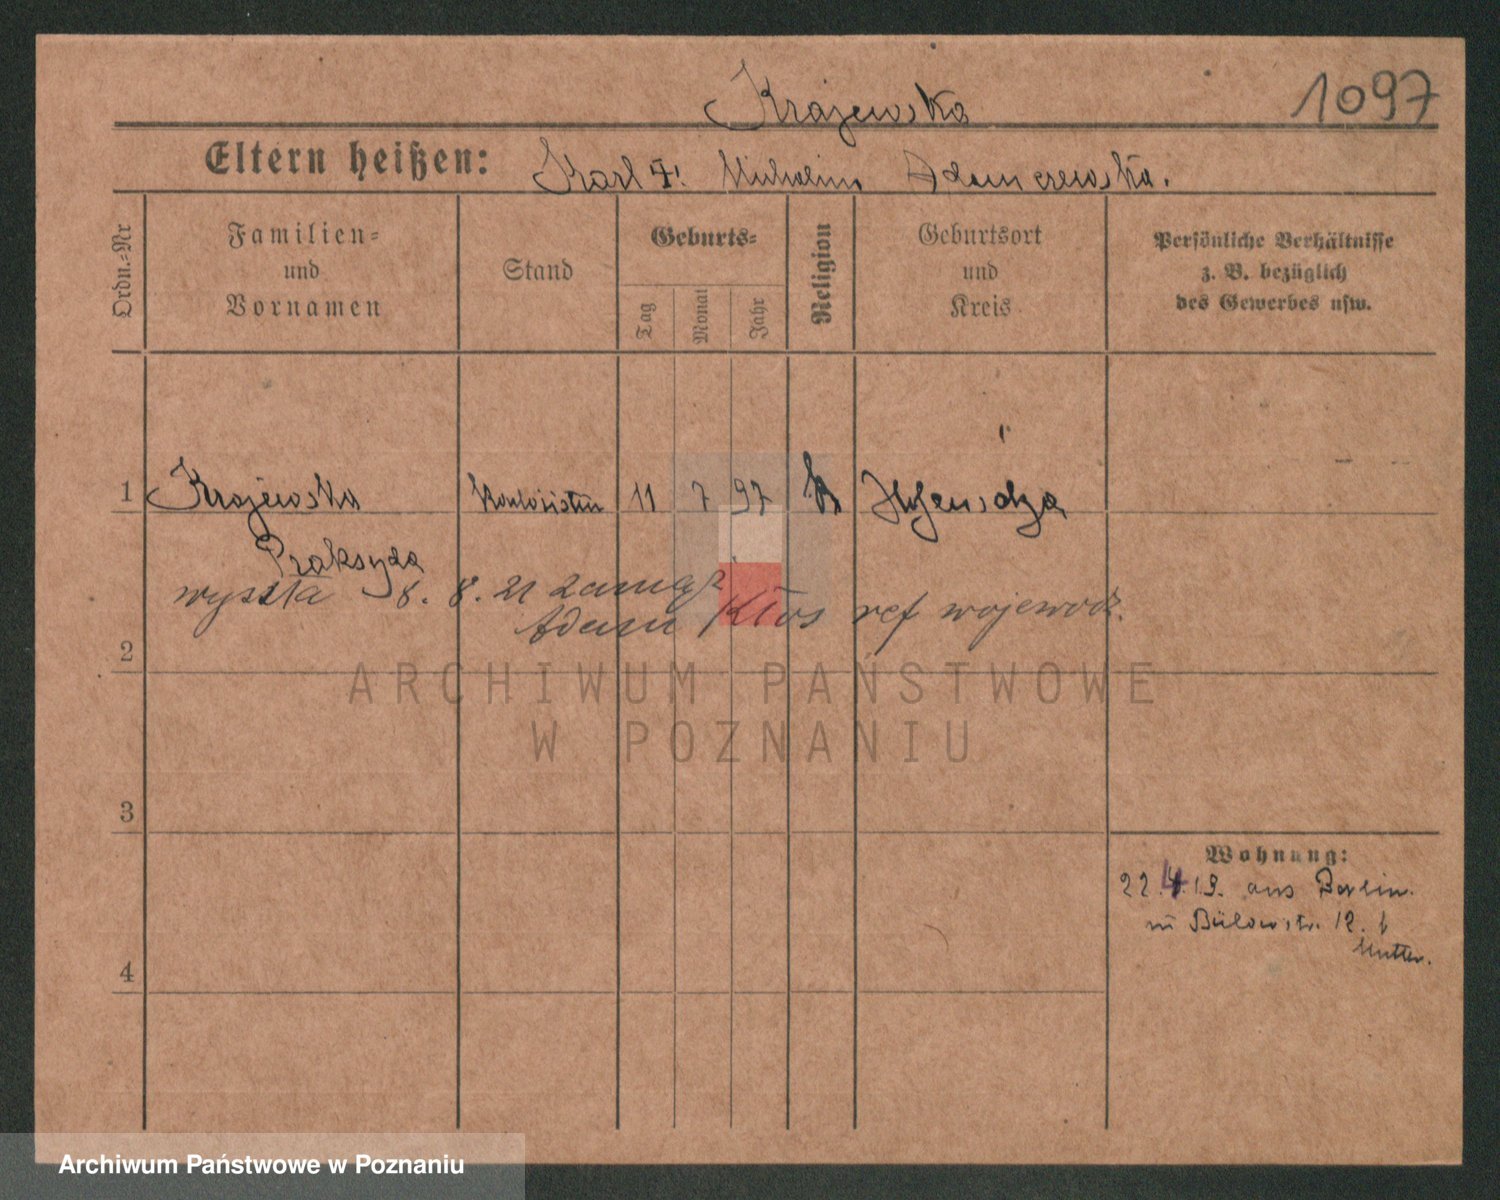 Krajewska
1097
Eltern heißen: Karl †. Adamczewska.
Ordn.-Nr
Familien-
und
Vornamen
Stand
Geburts-
Tag
Monat
Jahr
Religion
Geburtsort
und
Kreis
Persönliche Verhältnisse
z. B. bezüglich
des Gewerbes usw.
1 Krajewska Kontoristin 11 7 97 k
Praksyda
wyszła 8. 8. 21 zamąż
Adam Kłos ref wojewodz.
2
ARCHIWUM PAŃSTWOWE
W POZNANIU
3
Wohnung:
22.4.19. aus Berlin.
Bülowstr. 12. I
Mutter.
4
Archiwum Państwowe w Poznaniu